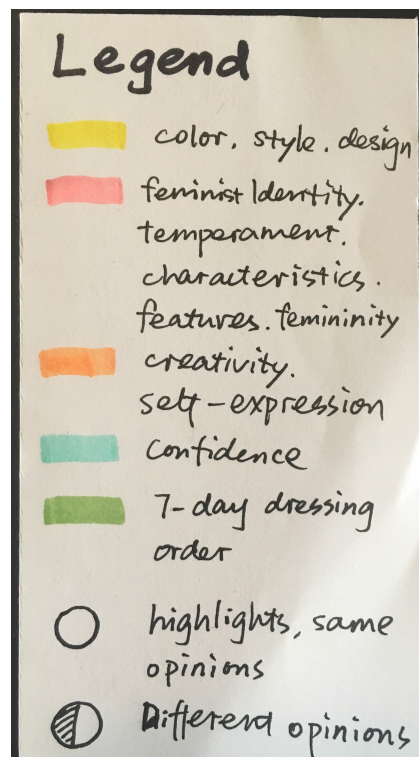 Legend
color. style. design
feminist Identity.
temperament.
characteristics.
features. femininity
creativity.
self-expression
Confidence
7-day dressing
order
highlights, same
opinions
Differend opinions